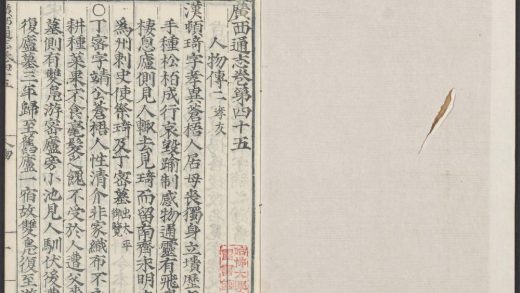 廣西通志卷第四十五
人物傳二 孝友
漢頓琦字孝異蒼梧人居母喪獨身立墳歷
手種松栢成行哀毀踰制感物通靈有飛
棲息廬側見人輙去見琦而留南齊永明
為州刺史使祭琦及丁密墓 出太平御覽
○丁密字靖公蒼梧人性清介非家織布不
耕種菜果不食毫髮之餽不受於人遭父
墓側有雙鳧游密廬旁小池見人馴伏後
復廬墓三年歸至舊廬一宿故雙鳧復至
人物